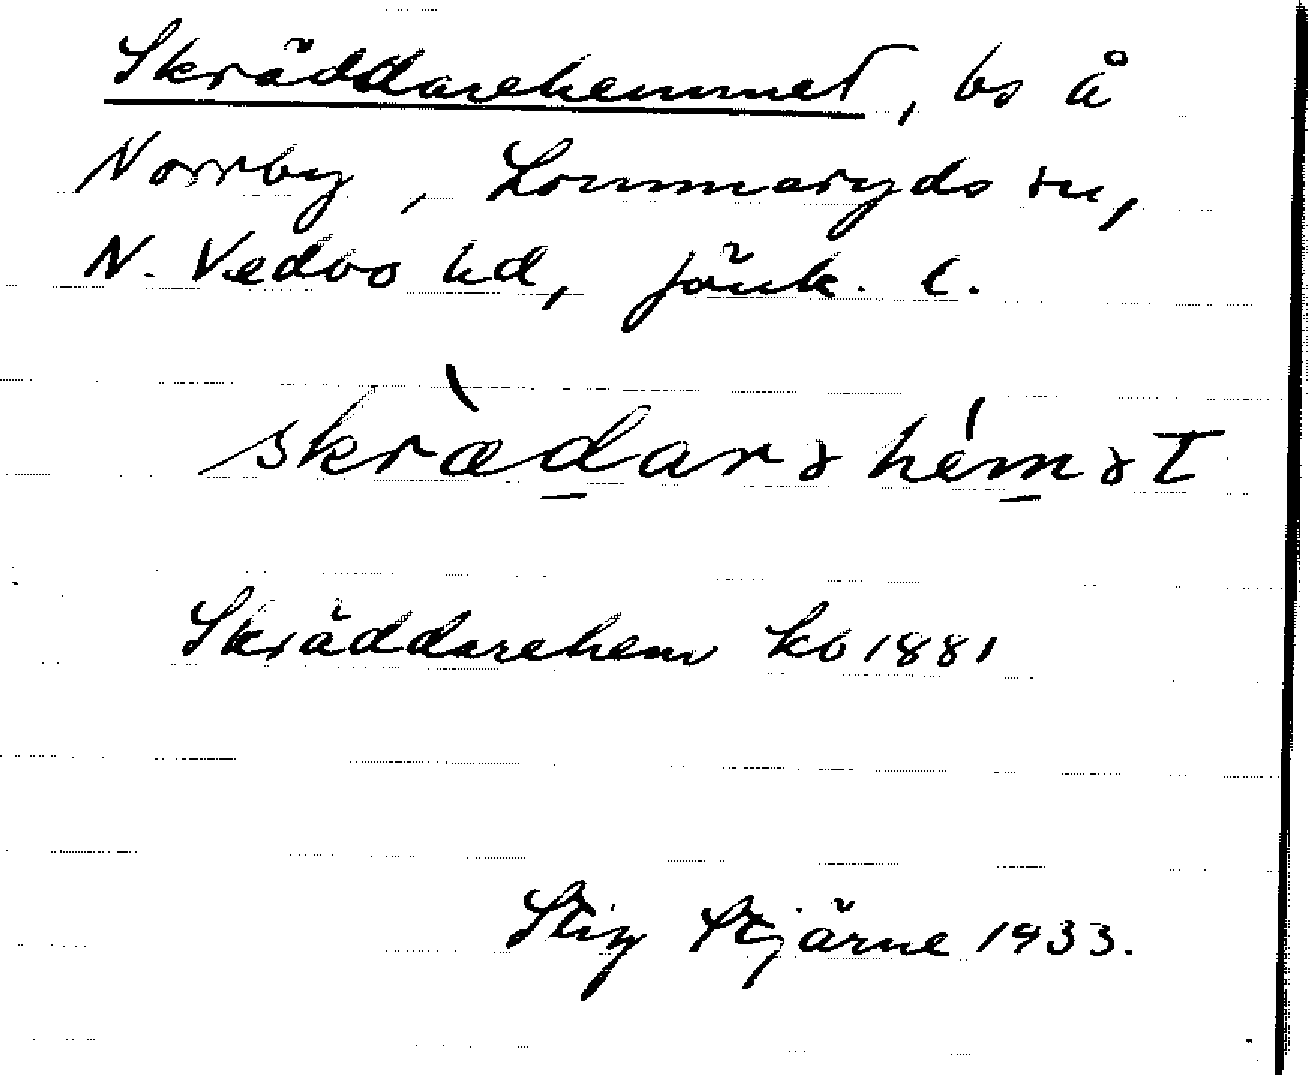 Skräddarehemmet, bs å
Norrby, Lommaryds sn,
N. Vedbo hd, Jönk. l.
skræ̀d̲arəhém̲ət
Skräddarehem kb 1881
Stig Stjärne 1933.